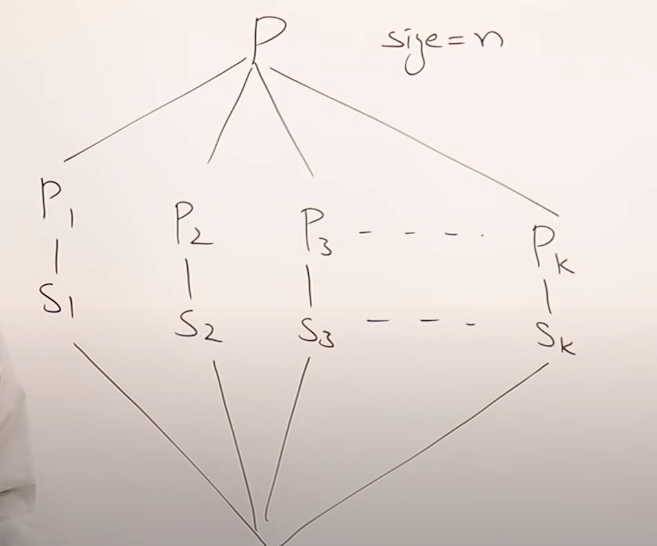 P size=n
P1 P2 P3 - - - - . Pk
S1 S2 S3 - - - Sk